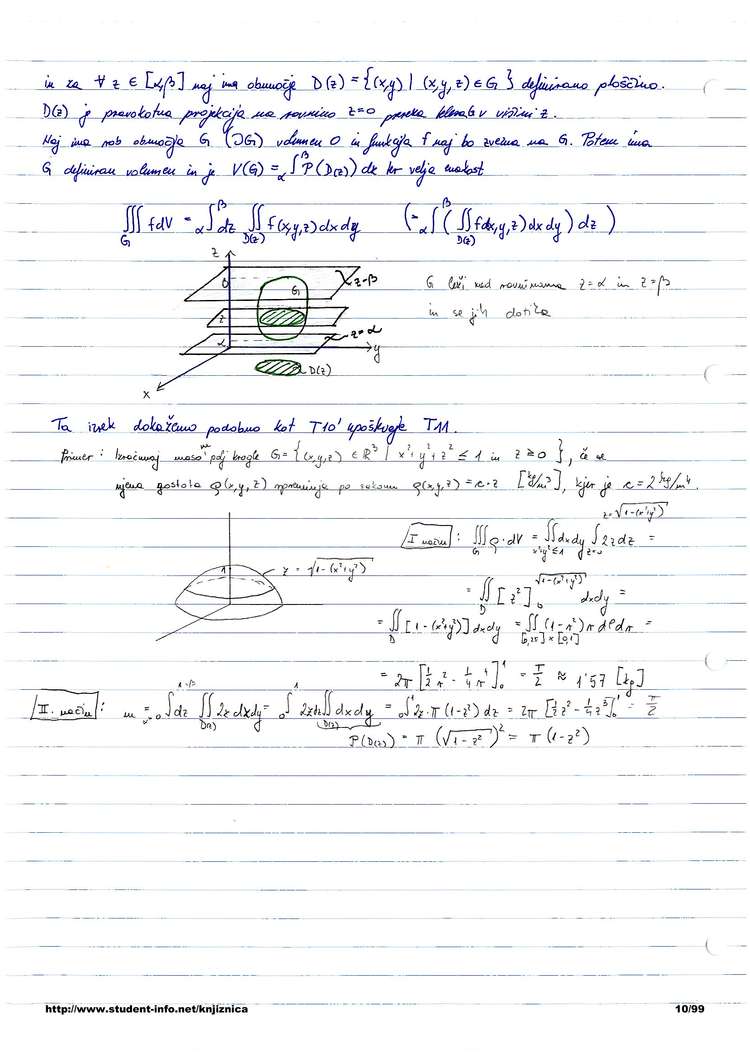 in za ∀ z ∈ [α,β] naj ima območje D(z) = {(x,y) | (x,y,z) ∈ G} definirano ploščino.
D(z) je pravokotna projekcija na ravnino z=0 preseka telesa G v višini z.
Naj ima rob območja G (∂G) volumen 0 in funkcija f naj bo zvezna na G. Potem ima
G definiran volumen in je V(G) = α∫β P(D(z)) dz ter velja enakost
∭G f dV = α∫β dz ∬D(z) f(x,y,z) dx dy (= α∫β (∬D(z) f(x,y,z) dx dy) dz)
z
G
z=β
z
z=α
α
y
D(z)
x
G leži med ravninama z=α in z=β
in se jih dotika
Ta izrek dokažemo podobno kot T10' T11.
Primer: Izračunaj maso m polj krogle G = {(x,y,z) ∈ ℝ³ | x²+y²+z² ≤ 1 in z ≥ 0}, če se
njena gostota ρ(x,y,z) spreminja po zakonu ρ(x,y,z) = c·z [kg/m³], kjer je c = 2 kg/m⁴.
1
z = √(1-(x²+y²))
I način: ∭G ρ·dV = ∬x²+y²≤1 dxdy ∫z=0 z=√(1-(x²+y²)) 2z dz =
= ∬D [z²]0 √(1-(x²+y²)) dxdy =
= ∬D [1-(x²+y²)] dxdy = ∬[0,2π]×[0,1] (1-r²) r dφ dr =
= 2π [1/2 r² - 1/4 r⁴]0 1 = π/2 ≈ 1'57 [kg]
II. način: m = 0∫1=β dz ∬D(z) 2z dxdy = 0∫1 2z dz ∬D(z) dxdy = 0∫1 2z·π(1-z²) dz = 2π [1/2 z² - 1/4 z⁴]0 1 = π/2
P(D(z)) = π (√(1-z²))² = π (1-z²)
http://www.student-info.net/knjiznica
10/99